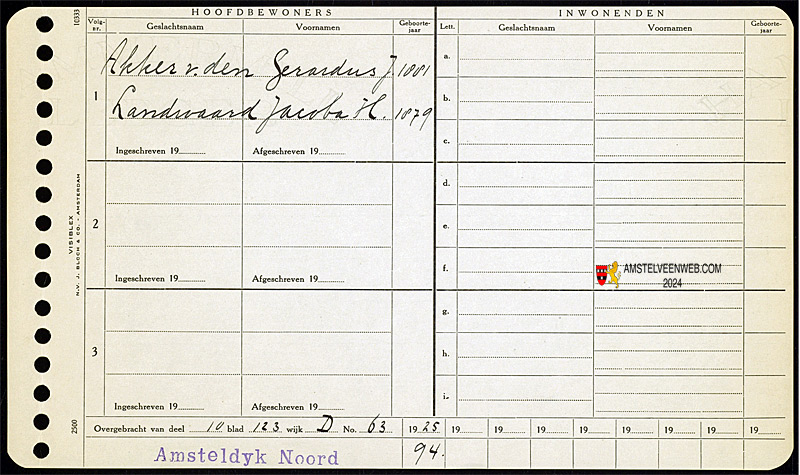 HOOFDBEWONERS
INWONENDEN
10333
Volg-nr.
Geslachtsnaam
Voornamen
Geboorte-jaar
Lett.
Geslachtsnaam
Voornamen
Geboorte-jaar
1
Akker v. den Gerardus J. 1881
Landwaard Jacoba H. 1879
Ingeschreven 19
Afgeschreven 19
2
Ingeschreven 19
Afgeschreven 19
3
Ingeschreven 19
Afgeschreven 19
a.
b.
c.
d.
e.
f.
g.
h.
i.
AMSTELVEENWEB.COM
2024
VISIBLEX
N.V. J. BLOCH & CO. - AMSTERDAM
2500
Overgebracht van deel 10 blad 123 wijk D No. 63
19 25 19 19 19 19 19 19 19 19
Amsteldyk Noord
94.